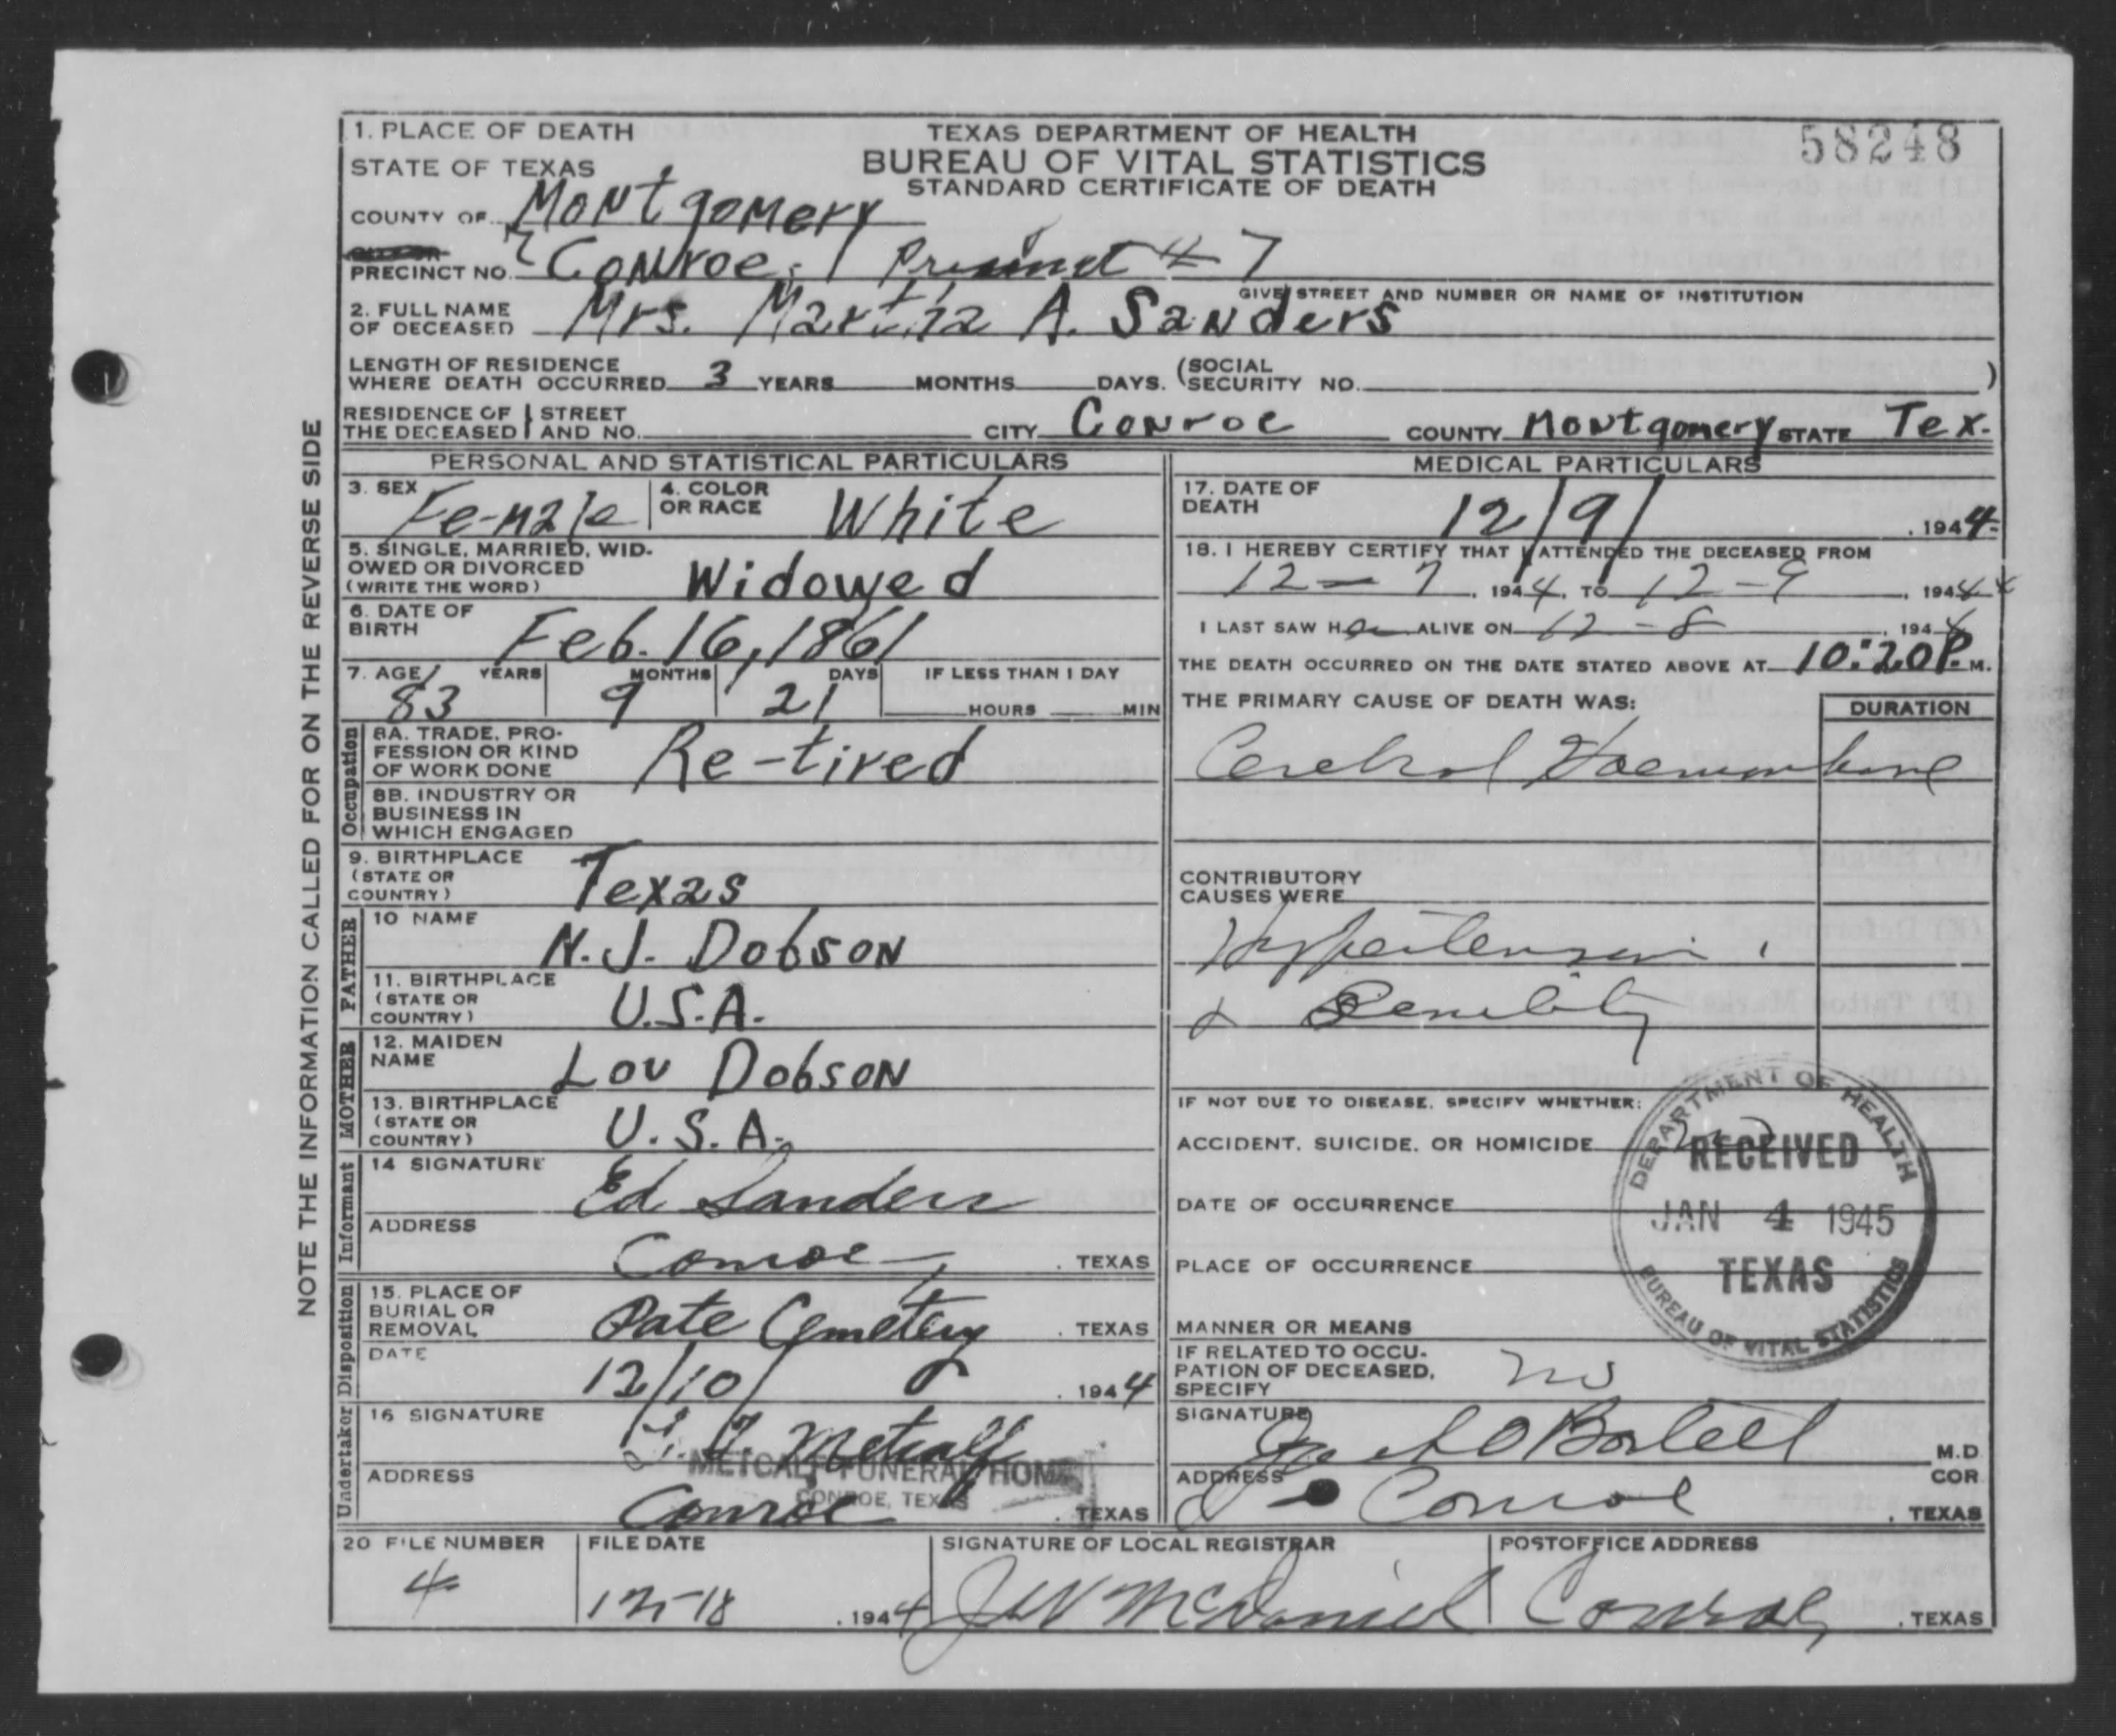 58248
1. PLACE OF DEATH
STATE OF TEXAS
TEXAS DEPARTMENT OF HEALTH
BUREAU OF VITAL STATISTICS
STANDARD CERTIFICATE OF DEATH
COUNTY OF Montgomery
PRECINCT NO. Conroe Precinct # 7
GIVE STREET AND NUMBER OR NAME OF INSTITUTION
2. FULL NAME
OF DECEASED Mrs. Martha A. Sanders
LENGTH OF RESIDENCE
WHERE DEATH OCCURRED 3 YEARS MONTHS DAYS. (SOCIAL
SECURITY NO. )
RESIDENCE OF THE DECEASED
STREET AND NO. CITY Conroe COUNTY Montgomery STATE Tex.
NOTE THE INFORMATION CALLED FOR ON THE REVERSE SIDE
PERSONAL AND STATISTICAL PARTICULARS
3. SEX Fe-male
4. COLOR
OR RACE White
5. SINGLE, MARRIED, WID-
OWED OR DIVORCED
(WRITE THE WORD) Widowed
6. DATE OF
BIRTH Feb. 16, 1861
7. AGE YEARS MONTHS DAYS IF LESS THAN 1 DAY
83 9 21 HOURS MIN
Occupation
8A. TRADE, PRO-
FESSION OR KIND
OF WORK DONE Re-tired
8B. INDUSTRY OR
BUSINESS IN
WHICH ENGAGED
9. BIRTHPLACE
(STATE OR
COUNTRY) Texas
FATHER
10 NAME N. J. Dobson
11. BIRTHPLACE
(STATE OR
COUNTRY) U.S.A.
MOTHER
12. MAIDEN
NAME Lou Dobson
13. BIRTHPLACE
(STATE OR
COUNTRY) U.S.A.
Informant
14 SIGNATURE Ed Sanders
ADDRESS Conroe, TEXAS
Disposition
15. PLACE OF
BURIAL OR
REMOVAL Pate Cemetery TEXAS
DATE 12/10/ 1944
Undertaker
16 SIGNATURE Metcalf
METCALF FUNERAL HOME
CONROE, TEXAS
ADDRESS Conroe TEXAS
MEDICAL PARTICULARS
17. DATE OF
DEATH 12/9/ , 1944
18. I HEREBY CERTIFY THAT I ATTENDED THE DECEASED FROM
12-7, 1944, TO 12-9, 1944
I LAST SAW Her ALIVE ON 12-8, 1944
THE DEATH OCCURRED ON THE DATE STATED ABOVE AT 10:20 P. M.
THE PRIMARY CAUSE OF DEATH WAS: DURATION
Cerebral Haemorrhage
CONTRIBUTORY
CAUSES WERE
Hypertension,
& Senility
IF NOT DUE TO DISEASE, SPECIFY WHETHER:
ACCIDENT, SUICIDE, OR HOMICIDE
DATE OF OCCURRENCE
PLACE OF OCCURRENCE
MANNER OR MEANS
DEPARTMENT OF HEALTH
RECEIVED
JAN 4 1945
TEXAS
BUREAU OF VITAL STATISTICS
IF RELATED TO OCCU-
PATION OF DECEASED,
SPECIFY no
SIGNATURE M.D
ADDRESS Conroe COR
. TEXAS
20 FILE NUMBER FILE DATE SIGNATURE OF LOCAL REGISTRAR POSTOFFICE ADDRESS
4 12-18 , 1944 McDaniel Conroe, TEXAS